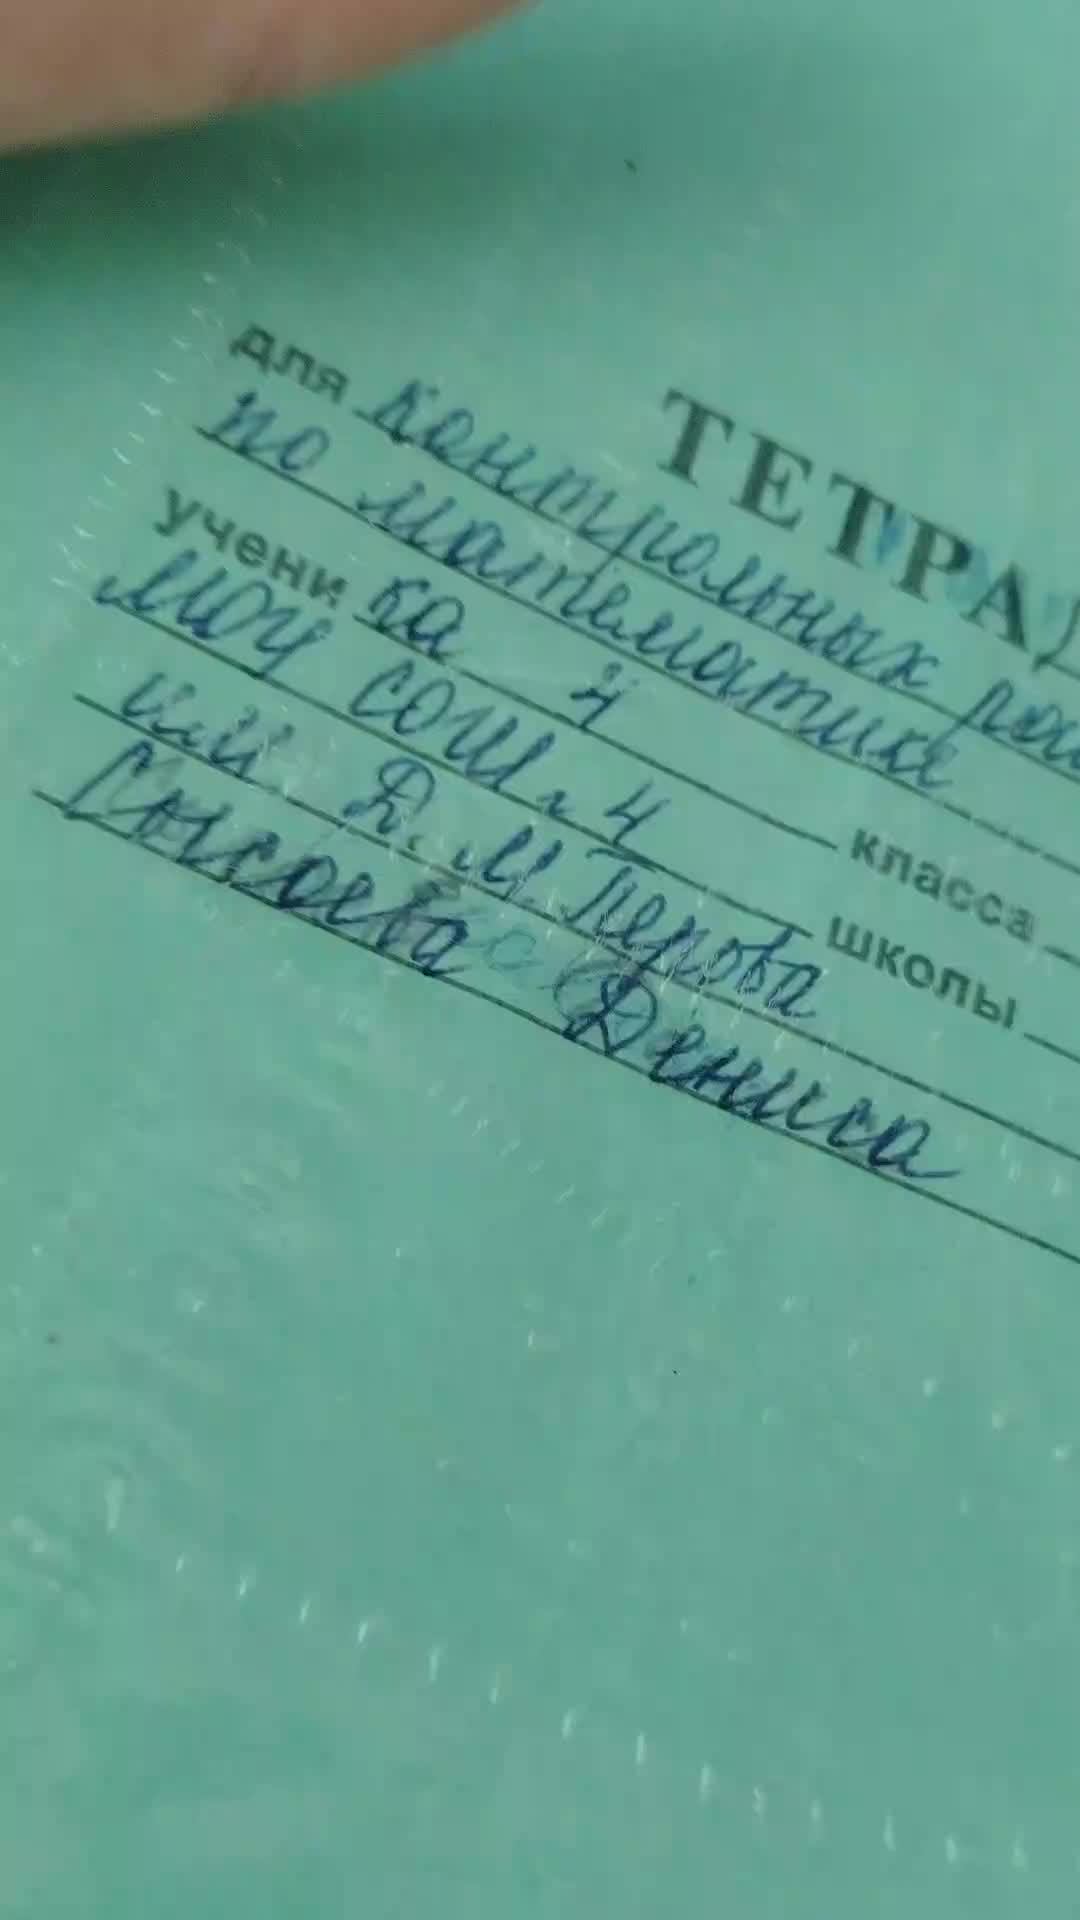 ТЕТРАД
для контрольных раб
по математике
ученика 4 класса
МОУ СОШ № 4 школы
им Д. М. Перова
Сысоева Дениса